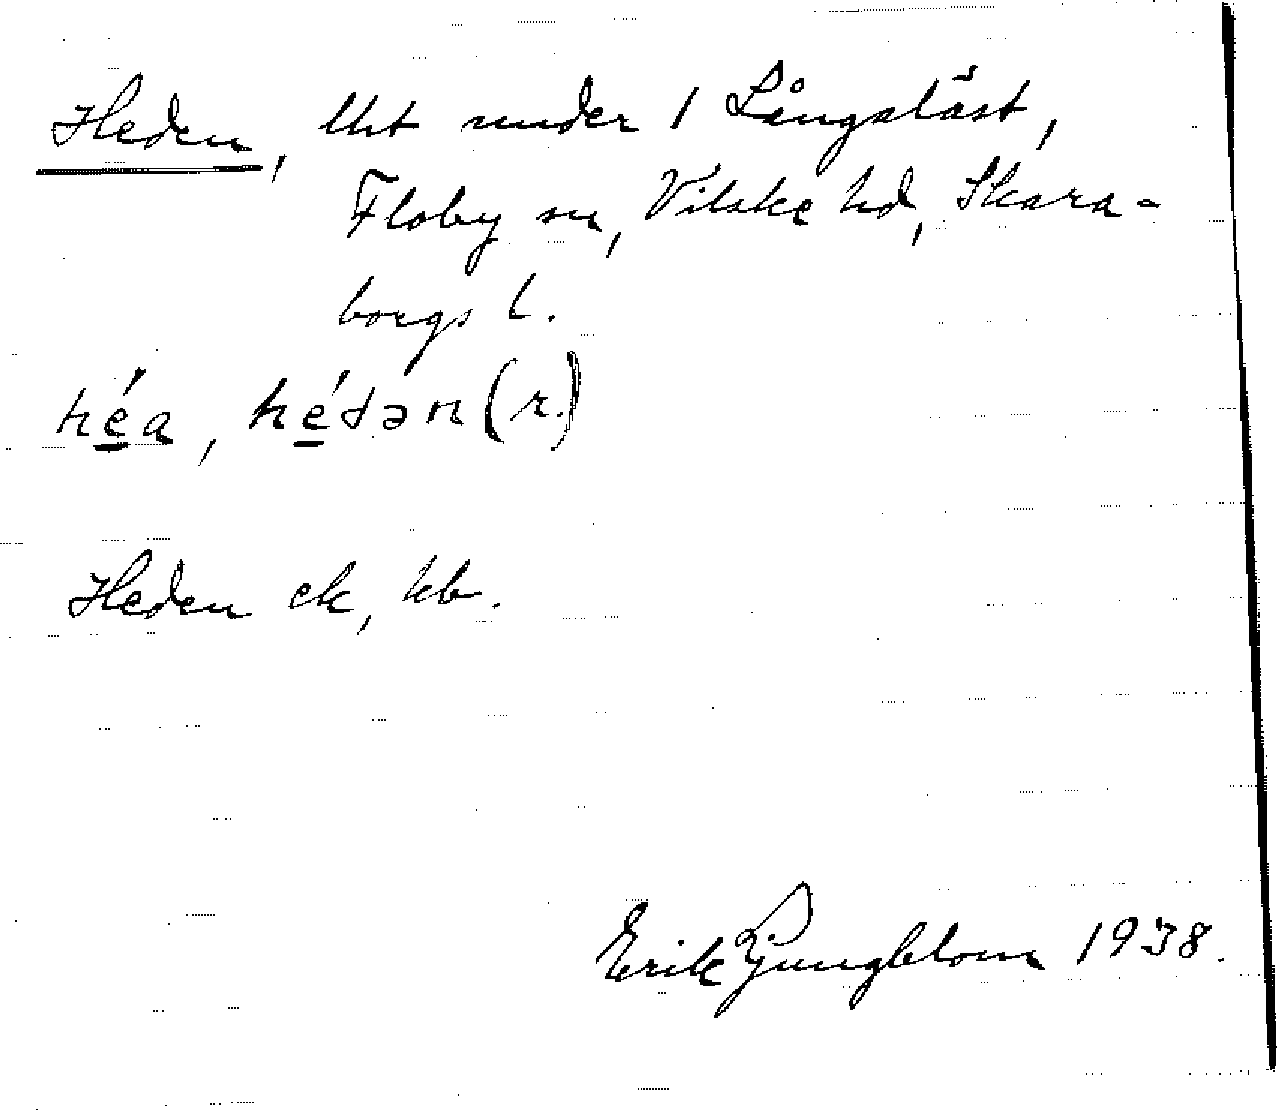 Heden, lht under 1 Långaläst,
Floby sn, Vilske hd, Skara-
borgs l.
hé̲a, hé̲dən (r.)
Heden ek, kb.
Erik Ljungblom 1938.